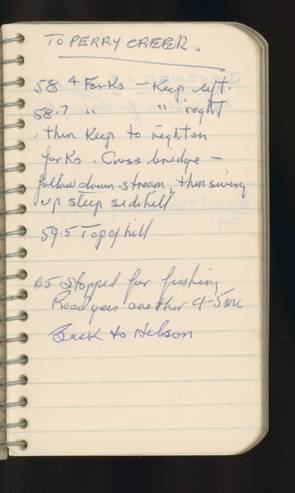 TO PERRY CREEK.
58.4 Forks - Keep left.
58.7 " " " right
then Keep to right on
forks. Cross bridge -
follow down stream, then swing
up steep sidehill
59.5 Top of hill
65 Stopped for fishing
Road goes another 4-5 mi
Back to Nelson